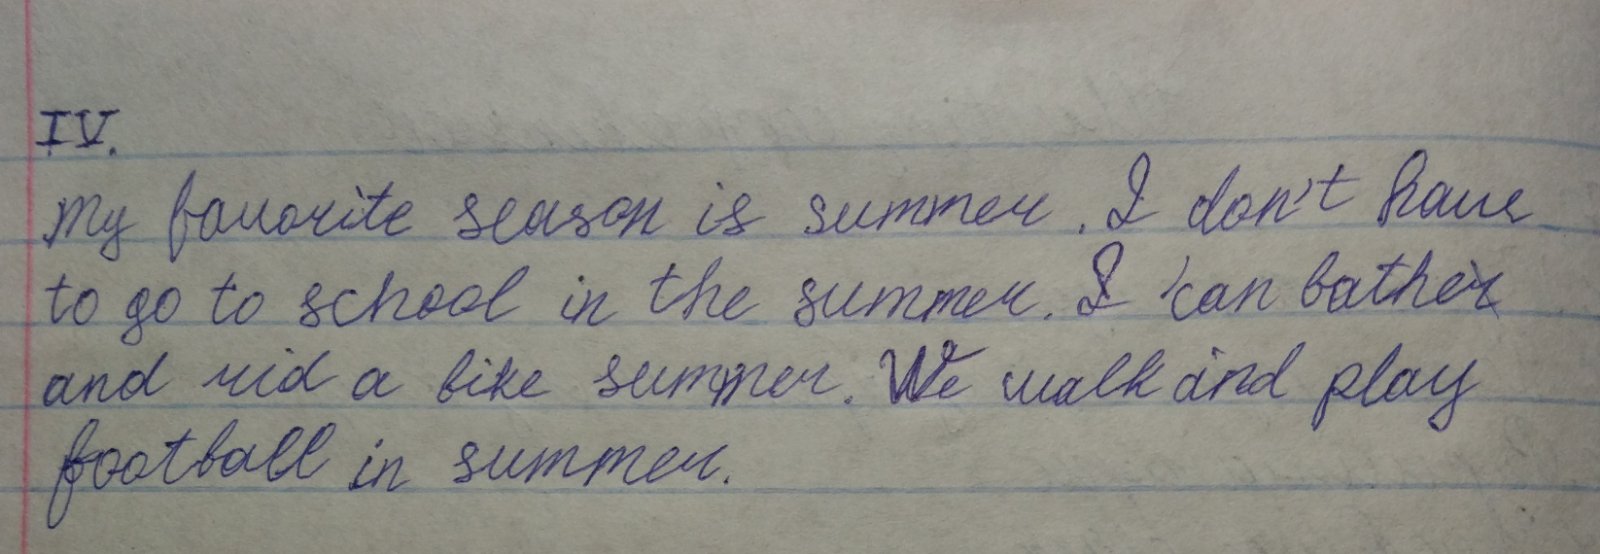 IV.
My favorite season is summer. I don't have
to go to school in the summer. I can bather
and rid a bike summer. We walk and play
football in summer.